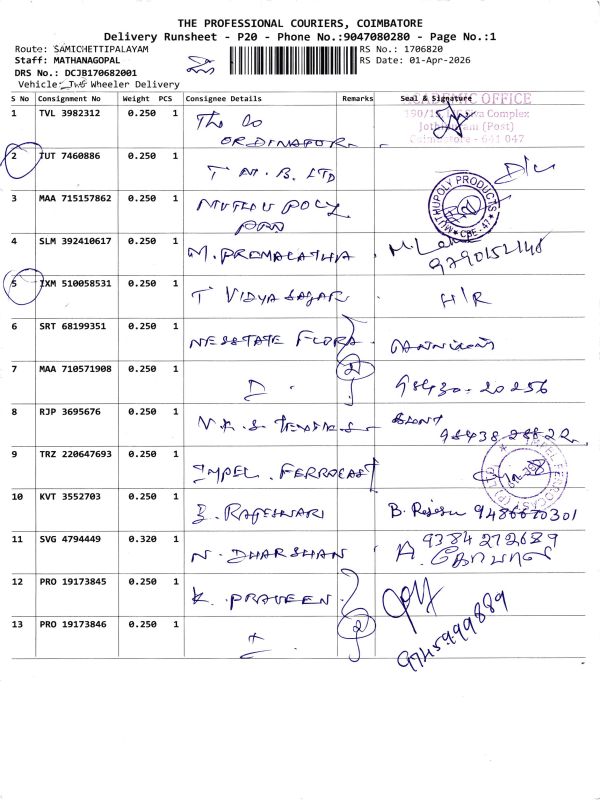 THE PROFESSIONAL COURIERS, COIMBATORE
Delivery Runsheet - P20 - Phone No.:9047080280 - Page No.:1
Route: SAMICHETTIPALAYAM
RS No.: 1706820
Staff: MATHANAGOPAL
RS Date: 01-Apr-2026
DRS No.: DCJB170682001
Vehicle: Two Wheeler Delivery
S No Consignment No Weight PCS Consignee Details Remarks Seal & Signature
1 TVL 3982312 0.250 1 The Co
ORDINATOR
OFFICE
Complex
(Post)
641 047
2 TUT 7460886 0.250 1 T N. B. LTD D/c
3 MAA 715157862 0.250 1 MUTHU POLY
MUTHUPOLY PRODUCTS
CBE-47
4 SLM 392410617 0.250 1 M. PREMALATHA 9790152148
5 IXM 510058531 0.250 1 T VIDYA SAGAR H/R
6 SRT 68199351 0.250 1 NESSTATE FLORA
7 MAA 710571908 0.250 1 I. 2 98430-20256
8 RJP 3695676 0.250 1 V.K.S 98438-28822
9 TRZ 220647693 0.250 1 IMPEL FERROCAST
IMPEL FERROCAST (P) LTD
10 KVT 3552703 0.250 1 B. RAJESWARI B. 9486670301
11 SVG 4794449 0.320 1 N. DHARSHAN 9384272689
A.
12 PRO 19173845 0.250 1 K. PRAVEEN
13 PRO 19173846 0.250 1 I. 2 9745999889